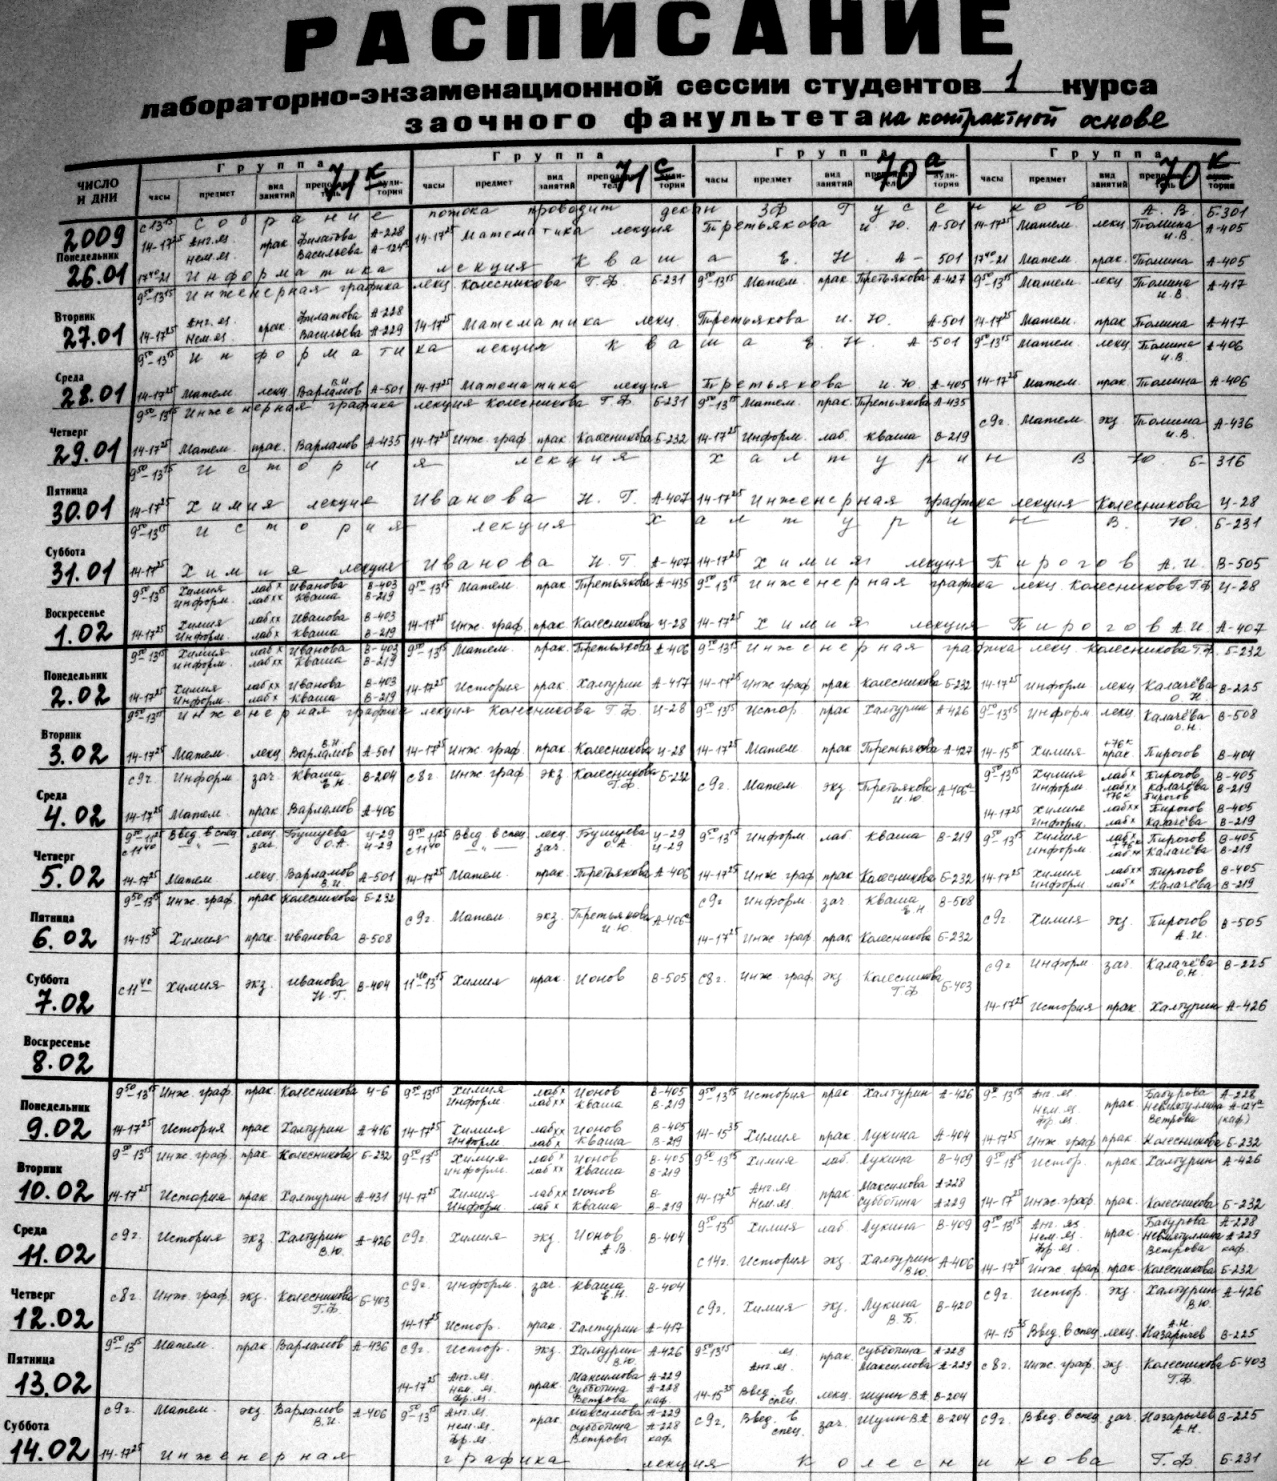 РАСПИСАНИЕ
лабораторно-экзаменационной сессии студентов 1 курса
заочного факультета на контрактной основе
ЧИСЛО И ДНИ
Группа 71к Группа 71с Группа 70а Группа 70к
часы предмет вид занятий часы предмет вид занятий часы предмет вид занятий часы предмет вид занятий
с 13 15 Собрание потока проводит декан ЗФ Гусенков А.В. Б-301
2009 14-17 25 Анг.яз. Нем.яз. прак Филатова Васильева А-228 14-17 25 Математика лекция Третьякова И.Ю. А-501 14-17 25 Матем лекц Тюмина И.В. А-405
Понедельник 26.01 17 40-21 Информатика лекция Кваша Е.Н. А-501 17 40-21 Матем. прак. Тюмина А-405
9 50-13 15 Инженерная графика лекц. Колесникова Г.Ф. Б-231 9 50-13 15 Матем. прак. Третьякова А-427 9 50-13 15 Матем. лекц. Тюмина И.В. А-417
Вторник 27.01 14-17 25 Анг.яз. Нем.яз. прак Филатова Васильева А-228 А-229 14-17 25 Математика лекц. Третьякова И.Ю. А-501 14-17 25 Матем. прак Тюмина А-417
9 50-13 15 Информатика лекция Кваша Е.Н. А-501 9 50-13 15 Матем. лекц Тюмина И.В. А-406
Среда 28.01 14-17 25 Матем лекц. Варламов В.И. А-501 14-17 25 Математика лекция Третьякова И.Ю. А-405 14-17 25 Матем. прак. Тюмина А-406
9 50-13 15 Инженерная графика лекция Колесникова Г.Ф. Б-231 9 50-13 15 Матем. прак. Третьякова А-435 с 9г. Матем экз Тюмина И.В. А-436
Четверг 29.01 14-17 25 Матем прак. Варламов А-435 14-17 25 Инж.граф. прак Колесникова Б-232 14-17 25 Информ. лаб. Кваша В-219
9 50-13 15 История лекция Халтурин В.Ю. Б-316
Пятница 30.01 14-17 25 Химия лекция Иванова Н.Г. А-407 14-17 25 Инженерная графика лекция Колесникова Ц-28
9 50-13 15 История лекция Халтурин В.Ю. Б-231
Суббота 31.01 14-17 25 Химия лекция Иванова Н.Г. А-407 14-17 25 Химия лекция Пирогов А.И. В-505
9 50-13 15 Химия Информ. лаб х лаб хх Иванова Кваша В-403 В-219 9 50-13 15 Матем прак Третьякова А-435 9 50-13 15 Инженерная графика лекц. Колесникова Г.Ф. Ц-28
Воскресенье 1.02 14-17 25 Химия Информ. лаб хх лаб х Иванова Кваша В-403 В-219 14-17 25 Инж.граф. прак Колесникова Ц-28 14-17 25 Химия лекция Пирогов А.И. А-407
9 50-13 15 Химия Информ. лаб х лаб хх Иванова Кваша В-403 В-219 9 50-13 15 Матем. прак. Третьякова А-406 9 50-13 15 Инженерная графика лекц. Колесникова Г.Ф. Б-232
Понедельник 2.02 14-17 25 Химия Информ. лаб хх лаб х Иванова Кваша В-403 В-219 14-17 25 История прак. Халтурин А-417 14-17 25 Инж граф прак Колесникова Б-232 14-17 25 Информ лекц Калачёва О.Н. В-225
9 50-13 15 Инженерная графика лекция Колесникова Г.Ф. Ц-28 9 50-13 15 Истор прак Халтурин А-426 9 50-13 15 Информ лекц. Калачёва О.Н. В-508
Вторник 3.02 14-17 25 Матем. лекц Варламов В.И. А-501 14-17 25 Инж граф. прак. Колесникова Ц-28 14-17 25 Матем прак Третьякова А-427 14-15 35 Химия +76к прак. Пирогов В-404
с 9г. Информ. зач. Кваша Е.Н. В-204 с 8г. Инж граф. экз Колесникова Г.Ф. Б-232 с 9г. Матем экз Третьякова И.Ю. А-406а 9 50-13 15 Химия Информ лаб х лаб хх 76к Пирогов Калачёва В-405 В-219
Среда 4.02 14-17 25 Матем прак Варламов А-406 14-17 25 Химия Информ. лаб хх лаб х Пирогов Калачёва В-405 В-219
9 50-11 25 Введ. в спец лекц. Бушуева О.А. Ц-29 9 50-11 25 Введ в спец. лекц. Бушуева О.А. Ц-29 9 50-13 15 Информ лаб Кваша В-219 9 50-13 15 Химия Информ. лаб х +76к лаб хх Пирогов Калачёва В-405 В-219
с 11 40 —"— зач. Ц-29 с 11 40 —"— зач. Ц-29
Четверг 5.02 14-17 25 Матем лекц. Варламов В.И. А-501 14-17 25 Матем прак. Третьякова А-406 14-17 25 Инж граф прак Колесникова Б-232 14-17 25 Химия Информ лаб хх лаб х Пирогов Калачёва В-405 В-219
9 50-13 15 Инж.граф. прак Колесникова Б-232 с 9г. Матем. экз Третьякова И.Ю. А-406а с 9г Информ зач Кваша Е.Н В-508 с 9г. Химия экз. Пирогов А.И. В-505
Пятница 6.02 14-15 35 Химия прак. Иванова В-508 14-17 25 Инж граф прак Колесникова Б-232
Суббота 7.02 с 11 40 Химия экз. Иванова Н.Г. В-404 11 40-13 15 Химия прак. Ионов В-505 с 8г. Инж граф экз Колесникова Г.Ф Б-403 с 9г. Информ зач. Калачёва О.Н. В-225
14-17 25 История прак. Халтурин А-426
Воскресенье 8.02
9 50-13 15 Инж.граф. прак. Колесникова Ц-6 9 50-13 15 Химия Информ. лаб х лаб хх Ионов Кваша В-405 В-219 9 50-13 15 История прак Халтурин А-426 9 50-13 15 Анг.яз Нем.яз Фр яз прак Бабурова Ветрова А-228 А-124а (каф)
Понедельник 9.02 14-17 25 История прак Халтурин А-416 14-17 25 Химия Информ лаб хх лаб х Ионов Кваша В-405 В-219 14-15 35 Химия прак. Лукина А-404 14-17 25 Инж граф прак Колесникова Б-232
9 50-13 15 Инж.граф. прак Колесникова Б-232 9 50-13 15 Химия Информ. лаб х лаб хх Ионов Кваша В-405 В-219 9 50-13 15 Химия лаб. Лукина В-409 9 50-13 15 Истор. прак. Халтурин А-426
Вторник 10.02 14-17 25 История прак. Халтурин А-431 14-17 25 Химия Информ. лаб хх лаб х Ионов Кваша В- В-219 14-17 25 Анг.яз Нем.яз. прак Максимова Субботина А-228 А229 14-17 25 Инж.граф прак. Колесникова Б-232
Среда 11.02 с 9г. История экз Халтурин В.Ю. А-426 с 9г. Химия экз. Ионов А В В-404 9 50-13 15 Химия лаб Лукина В-409 9 50-13 15 Анг. яз. Нем.яз. Фр.яз. прак. Бабурова Ветрова А-228 А-229 каф.
с 14г. История экз Халтурин В.Ю. А-406 14-17 25 Инж граф. прак. Колесникова Б-232
Четверг 12.02 с 8г. Инж.граф. экз. Колесникова Г.Ф. Б-403 с 9г. Информ. зач. Кваша Е.Н. В-404 с 9г. Химия экз. Лукина В.Б. В-420 с 9г. Истор. экз. Халтурин В.Ю. А-426
14-17 25 Истор. прак. Халтурин А-417 14-15 35 Введ.в спец лекц. Назарычев А.Н. В-225
9 50-13 15 Матем. прак Варламов А-436 с 9г. Истор. экз. Халтурин В.Ю. А-426 9 50-13 15 яз. Анг.яз. прак. Субботина Максимова А-228 А-229 с 8г. Инж.граф. экз. Колесникова Г.Ф. Б-403
Пятница 13.02 14-17 25 Анг.яз. Нем. яз. Фр.яз. прак. Максимова Субботина Ветрова А-229 А-228 каф. 14-15 35 Введ. в спец. лекц. Шуин В.А В-204
Суббота 14.02 с 9г. Матем. экз. Варламов В.И. А-406 9 50-13 15 Анг.яз. Нем.яз. Фр.яз. прак. Максимова Субботина Ветрова А-229 А-228 каф. с 9г. Введ. в спец. зач. Шуин В.А В-204 с 9г. Введ.в спец зач. Назарычев А.Н. В-225
14-17 25 Инженерная графика лекция Колесникова Г.Ф. Б-231